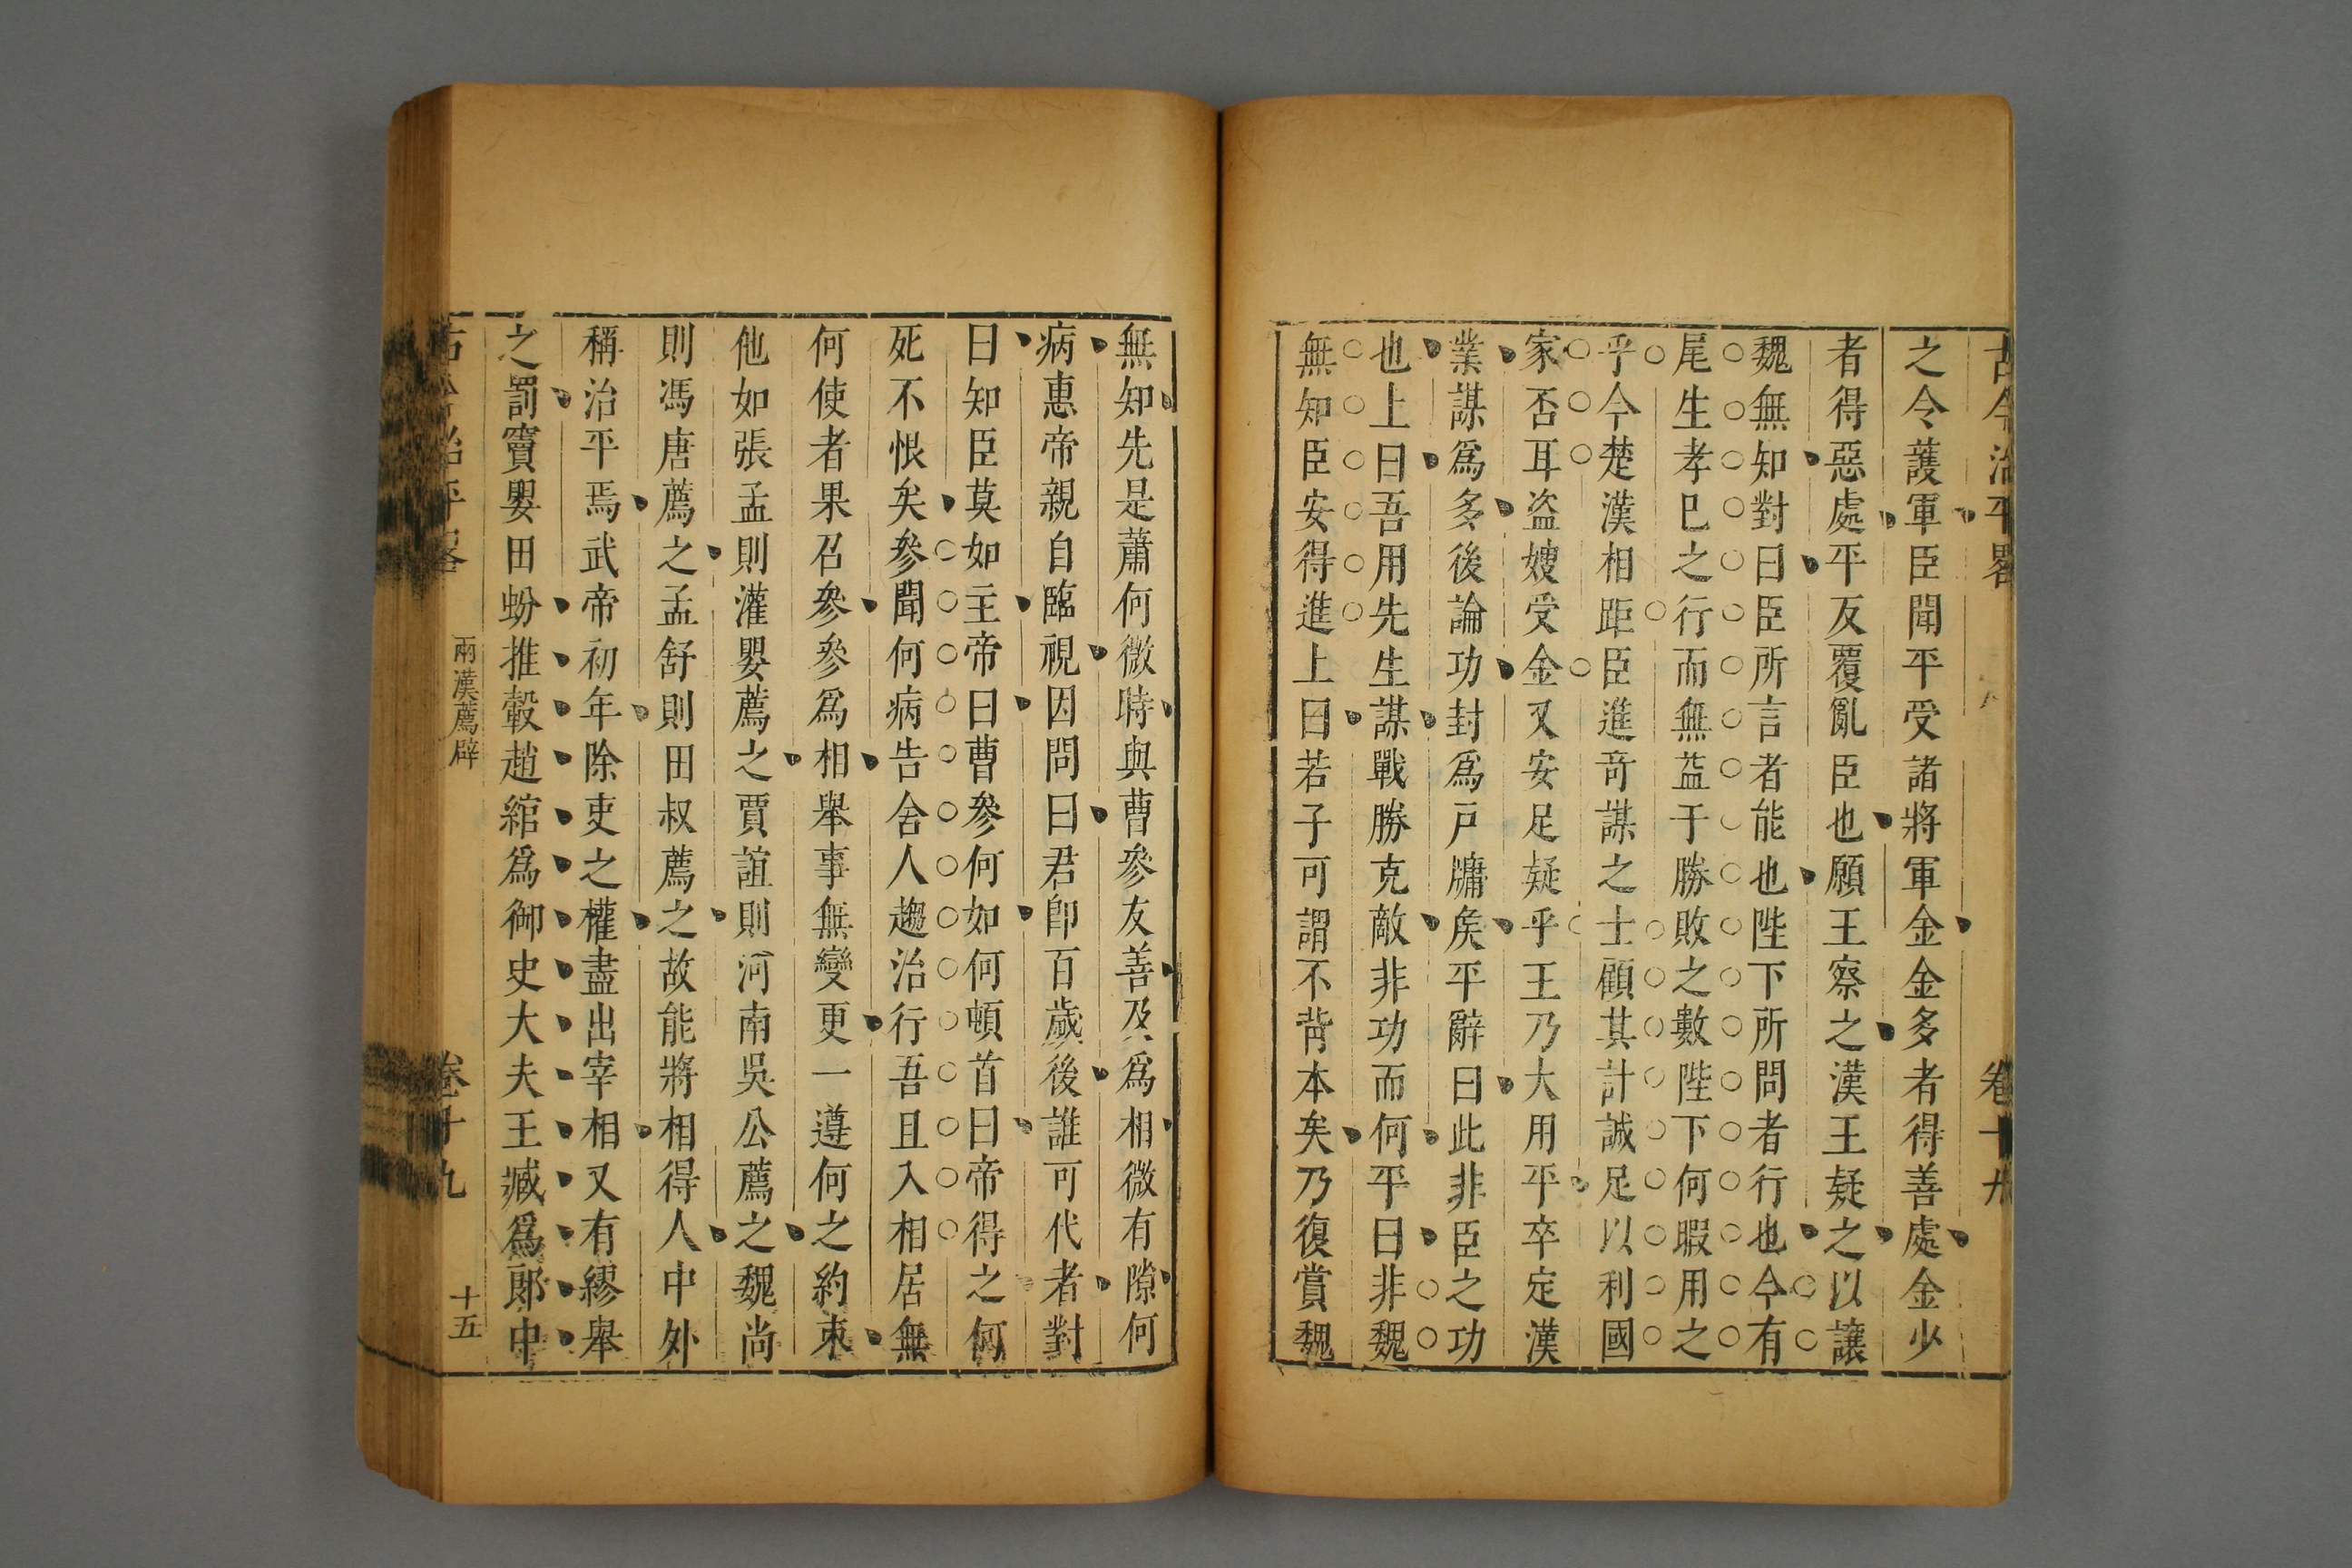 古今治平畧 卷十九
之令護軍臣聞平受諸將軍金金多者得善處金少
者得惡處平反覆亂臣也願王察之漢王疑之以讓
魏無知對曰臣所言者能也陛下所問者行也今有
尾生孝已之行而無益于勝敗之數陛下何暇用之
乎今楚漢相距臣進奇謀之士顧其計誠足以利國
家否耳盜嫂受金又安足疑乎王乃大用平卒定漢
業謀爲多後論功封爲戸牖矦平辭曰此非臣之功
也上曰吾用先生謀戰勝克敵非功而何平曰非魏
無知臣安得進上曰若子可謂不背本矣乃復賞魏
無知先是蕭何微時與曹參友善及爲相微有隙何
病惠帝親自臨視因問曰君卽百歲後誰可代者對
曰知臣莫如主帝曰曹參何如何頓首曰帝得之何
死不恨矣參聞何病告舍人趨治行吾且入相居無
何使者果召參參爲相舉事無變更一遵何之約束
他如張孟則灌嬰薦之賈誼則河南吳公薦之魏尚
則馮唐薦之孟舒則田叔薦之故能將相得人中外
稱治平焉武帝初年除吏之權盡出宰相又有繆舉
之罰竇嬰田蚡推轂趙綰爲御史大夫王臧爲郞中
古今治平畧 兩漢薦辟 卷十九 十五